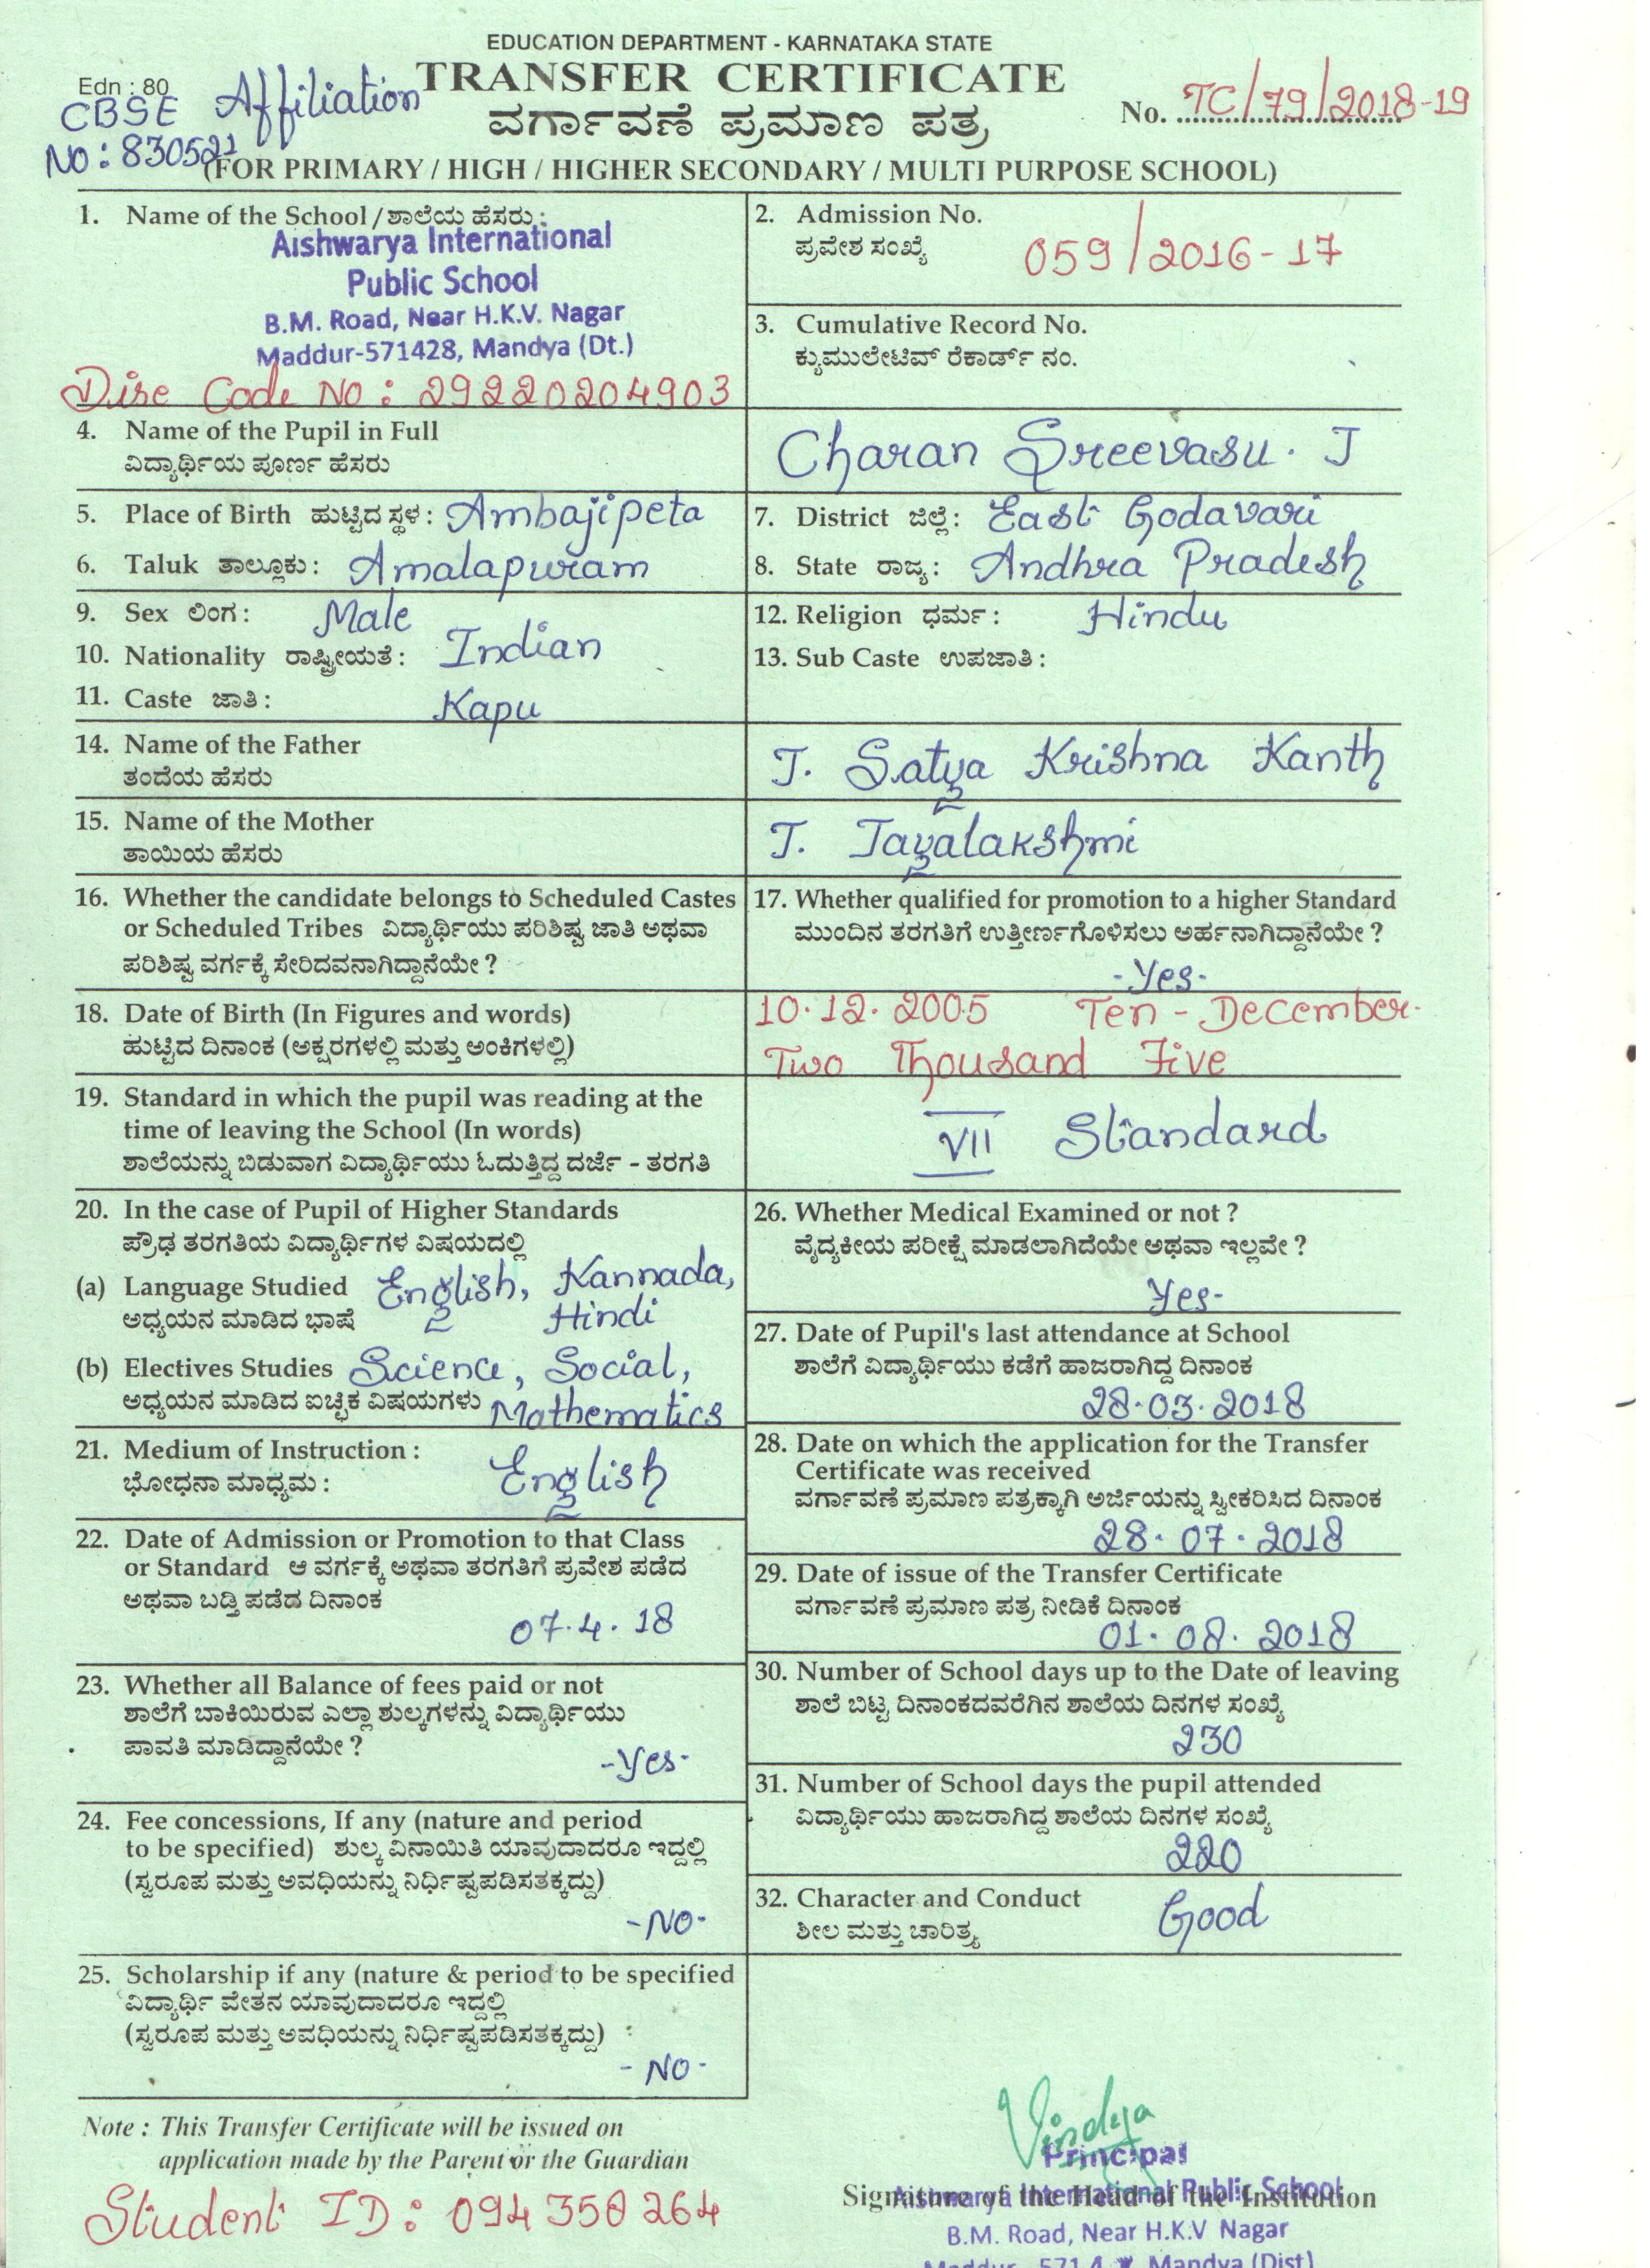 EDUCATION DEPARTMENT - KARNATAKA STATE
Edn : 80
TRANSFER CERTIFICATE
CBSE Affiliation
NO : 830521
ವರ್ಗಾವಣೆ ಪ್ರಮಾಣ ಪತ್ರ
No. TC/79/2018-19
(FOR PRIMARY / HIGH / HIGHER SECONDARY / MULTI PURPOSE SCHOOL)
1. Name of the School / ಶಾಲೆಯ ಹೆಸರು :
Aishwarya International
Public School
B.M. Road, Near H.K.V. Nagar
Maddur-571428, Mandya (Dt.)
Dise Code NO : 29220204903
2. Admission No.
ಪ್ರವೇಶ ಸಂಖ್ಯೆ 059/2016-17
3. Cumulative Record No.
ಕ್ಯುಮುಲೇಟಿವ್ ರೆಕಾರ್ಡ್ ನಂ.
4. Name of the Pupil in Full
ವಿದ್ಯಾರ್ಥಿಯ ಪೂರ್ಣ ಹೆಸರು
Charan Sreevasu. J
5. Place of Birth ಹುಟ್ಟಿದ ಸ್ಥಳ : Ambajipeta
6. Taluk ತಾಲ್ಲೂಕು : Amalapuram
7. District ಜಿಲ್ಲೆ : East Godavari
8. State ರಾಜ್ಯ : Andhra Pradesh
9. Sex ಲಿಂಗ : Male
10. Nationality ರಾಷ್ಟ್ರೀಯತೆ : Indian
11. Caste ಜಾತಿ : Kapu
12. Religion ಧರ್ಮ : Hindu
13. Sub Caste ಉಪಜಾತಿ :
14. Name of the Father
ತಂದೆಯ ಹೆಸರು
J. Satya Krishna Kanth
15. Name of the Mother
ತಾಯಿಯ ಹೆಸರು
J. Jayalakshmi
16. Whether the candidate belongs to Scheduled Castes
or Scheduled Tribes ವಿದ್ಯಾರ್ಥಿಯು ಪರಿಶಿಷ್ಟ ಜಾತಿ ಅಥವಾ
ಪರಿಶಿಷ್ಟ ವರ್ಗಕ್ಕೆ ಸೇರಿದವನಾಗಿದ್ದಾನೆಯೇ ?
17. Whether qualified for promotion to a higher Standard
ಮುಂದಿನ ತರಗತಿಗೆ ಉತ್ತೀರ್ಣಗೊಳಿಸಲು ಅರ್ಹನಾಗಿದ್ದಾನೆಯೇ ?
-Yes-
18. Date of Birth (In Figures and words)
ಹುಟ್ಟಿದ ದಿನಾಂಕ (ಅಕ್ಷರಗಳಲ್ಲಿ ಮತ್ತು ಅಂಕಿಗಳಲ್ಲಿ)
10.12.2005 Ten - December.
Two Thousand Five
19. Standard in which the pupil was reading at the
time of leaving the School (In words)
ಶಾಲೆಯನ್ನು ಬಿಡುವಾಗ ವಿದ್ಯಾರ್ಥಿಯು ಓದುತ್ತಿದ್ದ ದರ್ಜೆ - ತರಗತಿ
VII Standard
20. In the case of Pupil of Higher Standards
ಪ್ರೌಢ ತರಗತಿಯ ವಿದ್ಯಾರ್ಥಿಗಳ ವಿಷಯದಲ್ಲಿ
(a) Language Studied English, Kannada,
ಅಧ್ಯಯನ ಮಾಡಿದ ಭಾಷೆ Hindi
(b) Electives Studies Science, Social,
ಅಧ್ಯಯನ ಮಾಡಿದ ಐಚ್ಛಿಕ ವಿಷಯಗಳು Mathematics
21. Medium of Instruction :
ಭೋಧನಾ ಮಾಧ್ಯಮ : English
22. Date of Admission or Promotion to that Class
or Standard ಆ ವರ್ಗಕ್ಕೆ ಅಥವಾ ತರಗತಿಗೆ ಪ್ರವೇಶ ಪಡೆದ
ಅಥವಾ ಬಡ್ತಿ ಪಡೆದ ದಿನಾಂಕ
07.4.18
23. Whether all Balance of fees paid or not
ಶಾಲೆಗೆ ಬಾಕಿಯಿರುವ ಎಲ್ಲಾ ಶುಲ್ಕಗಳನ್ನು ವಿದ್ಯಾರ್ಥಿಯು
ಪಾವತಿ ಮಾಡಿದ್ದಾನೆಯೇ ?
-Yes-
24. Fee concessions, If any (nature and period
to be specified) ಶುಲ್ಕ ವಿನಾಯಿತಿ ಯಾವುದಾದರೂ ಇದ್ದಲ್ಲಿ
(ಸ್ವರೂಪ ಮತ್ತು ಅವಧಿಯನ್ನು ನಿರ್ಧಿಷ್ಟಪಡಿಸತಕ್ಕದ್ದು)
-NO-
25. Scholarship if any (nature & period to be specified
ವಿದ್ಯಾರ್ಥಿ ವೇತನ ಯಾವುದಾದರೂ ಇದ್ದಲ್ಲಿ
(ಸ್ವರೂಪ ಮತ್ತು ಅವಧಿಯನ್ನು ನಿರ್ಧಿಷ್ಟಪಡಿಸತಕ್ಕದ್ದು)
-NO-
26. Whether Medical Examined or not ?
ವೈದ್ಯಕೀಯ ಪರೀಕ್ಷೆ ಮಾಡಲಾಗಿದೆಯೇ ಅಥವಾ ಇಲ್ಲವೇ ?
Yes-
27. Date of Pupil's last attendance at School
ಶಾಲೆಗೆ ವಿದ್ಯಾರ್ಥಿಯು ಕಡೆಗೆ ಹಾಜರಾಗಿದ್ದ ದಿನಾಂಕ
28.03.2018
28. Date on which the application for the Transfer
Certificate was received
ವರ್ಗಾವಣೆ ಪ್ರಮಾಣ ಪತ್ರಕ್ಕಾಗಿ ಅರ್ಜಿಯನ್ನು ಸ್ವೀಕರಿಸಿದ ದಿನಾಂಕ
28.07.2018
29. Date of issue of the Transfer Certificate
ವರ್ಗಾವಣೆ ಪ್ರಮಾಣ ಪತ್ರ ನೀಡಿಕೆ ದಿನಾಂಕ
01.08.2018
30. Number of School days up to the Date of leaving
ಶಾಲೆ ಬಿಟ್ಟ ದಿನಾಂಕದವರೆಗಿನ ಶಾಲೆಯ ದಿನಗಳ ಸಂಖ್ಯೆ
230
31. Number of School days the pupil attended
ವಿದ್ಯಾರ್ಥಿಯು ಹಾಜರಾಗಿದ್ದ ಶಾಲೆಯ ದಿನಗಳ ಸಂಖ್ಯೆ
220
32. Character and Conduct
ಶೀಲ ಮತ್ತು ಚಾರಿತ್ರ್ಯ Good
Note : This Transfer Certificate will be issued on
application made by the Parent or the Guardian
Student ID : 094358264
Vindya
Principal
Signature of the Head of the Institution
Aishwarya International Public School
B.M. Road, Near H.K.V Nagar
Mandya (Dist)